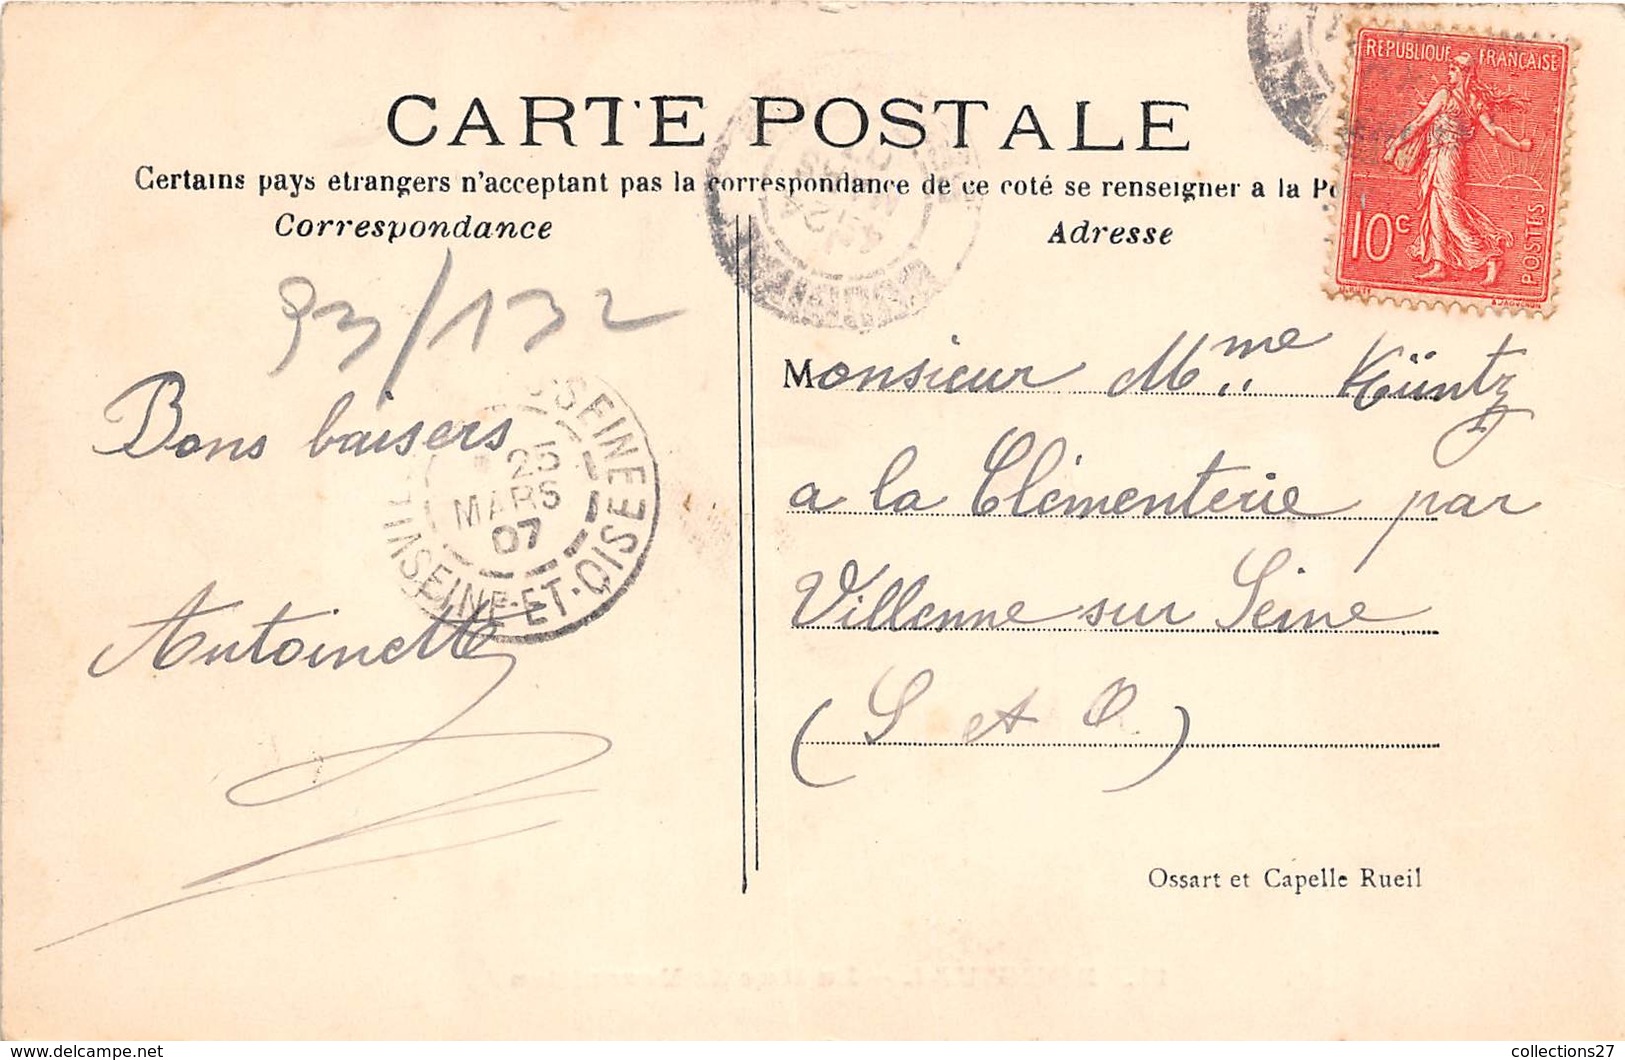 CARTE POSTALE
Certains pays etrangers n'acceptant pas la correspondance de ce coté se renseigner a la
Correspondance
Adresse
REPUBLIQUE FRANÇAISE
10c
POSTES
93/132
Bons baisers
Antoinette
25
MARS
07
SEINE-ET-OISE
Monsieur Mme Küntz
a la Clémenterie par
Villenne sur Seine
(S et O)
Ossart et Capelle Rueil
collections27